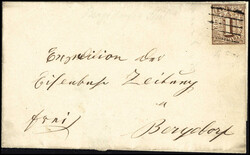 Expedition der
Eisenbahn Zeitung
frei
Bergedorf